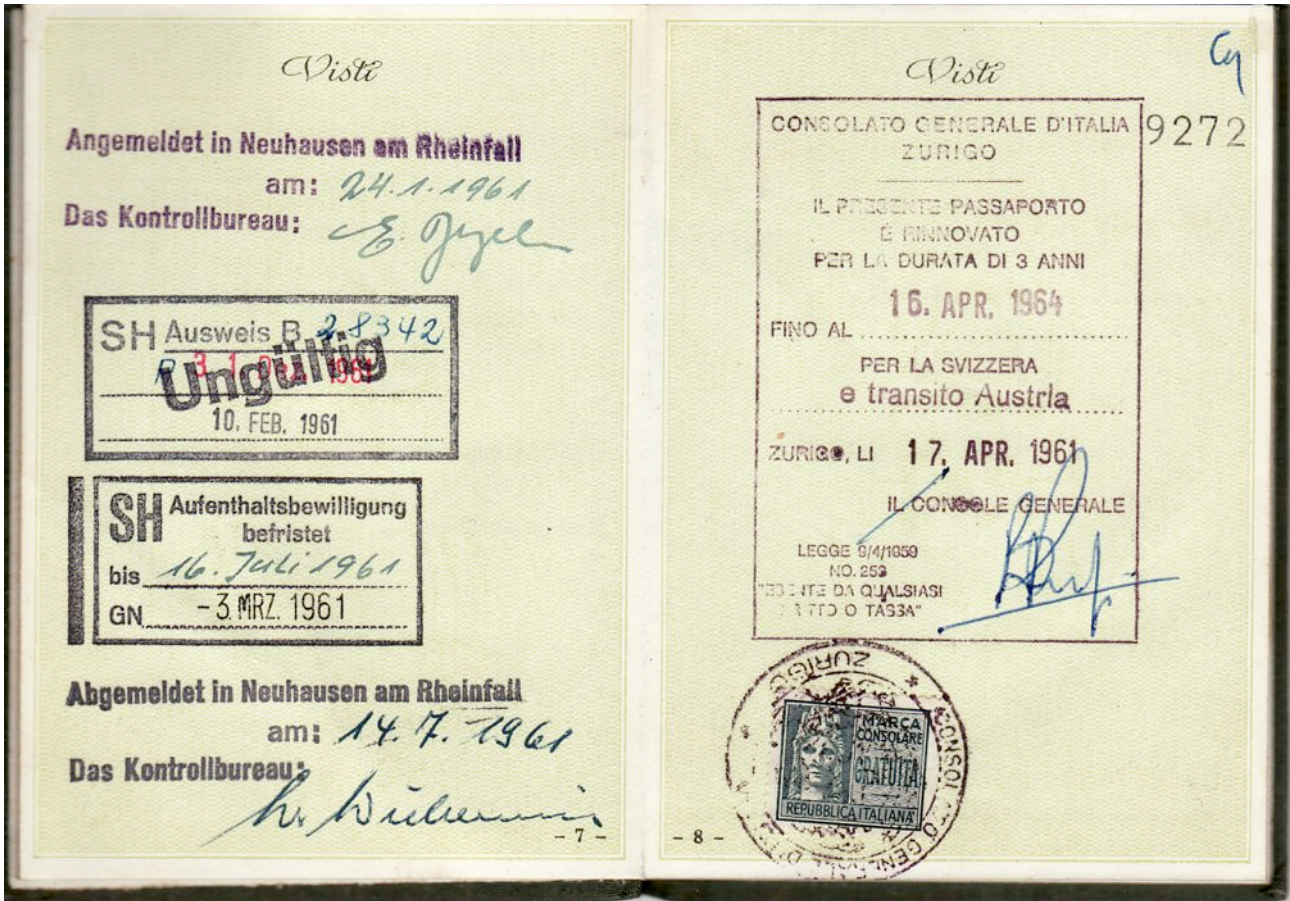 Visti
Angemeldet in Neuhausen am Rheinfall
am: 24.1.1961
Das Kontrollbureau:
SH Ausweis B 28342
31 Dez. 1961
Ungültig
10. FEB. 1961
SH Aufenthaltsbewilligung
befristet
bis 16. Juli 1961
GN -3. MRZ. 1961
Abgemeldet in Neuhausen am Rheinfall
am: 14.7.1961
Das Kontrollbureau:
- 7 -
Visti
CONSOLATO GENERALE D'ITALIA
ZURIGO
9272
IL PRESENTE PASSAPORTO
È RINNOVATO
PER LA DURATA DI 3 ANNI
16. APR. 1964
FINO AL
PER LA SVIZZERA
e transito Austria
ZURIGO, LI 17. APR. 1961
IL CONSOLE GENERALE
LEGGE 9/4/1959
NO. 253
"ESENTE DA QUALSIASI
DIRITTO O TASSA"
ZURIGO
CONSOLATO GENERALE D'ITALIA
MARCA
CONSOLARE
GRATUITA
REPUBBLICA ITALIANA
- 8 -